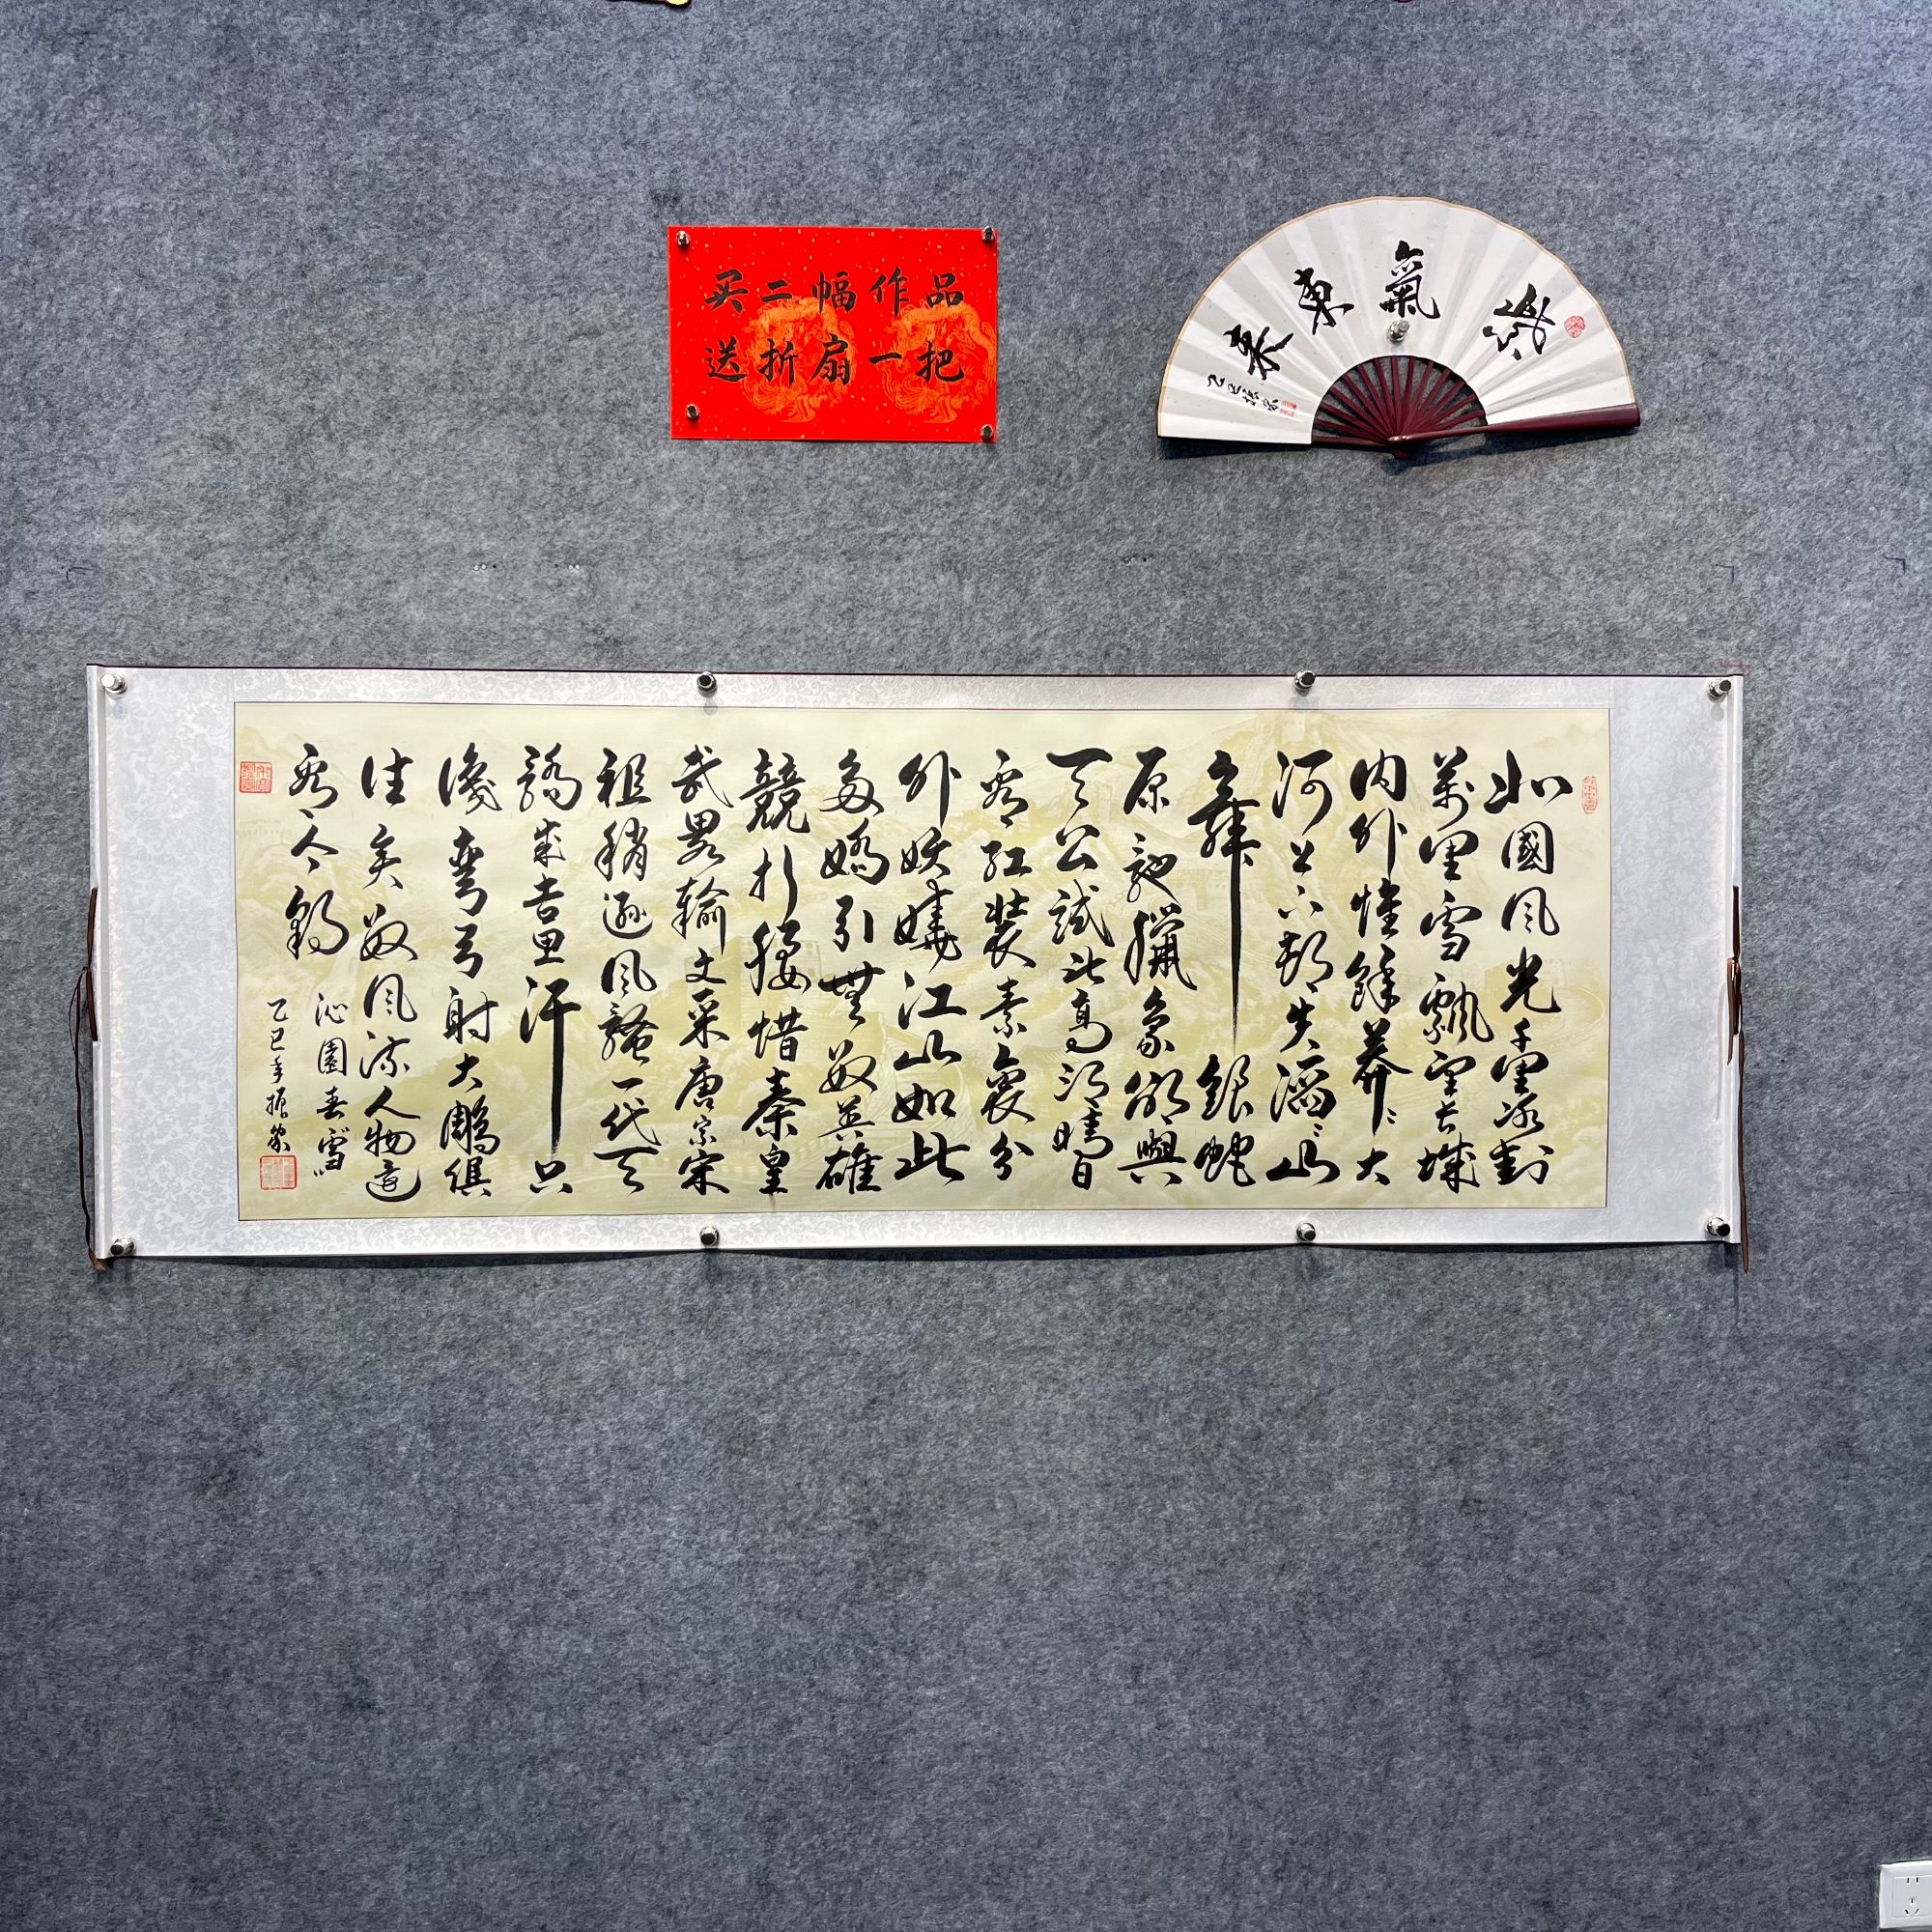 买二幅作品
送折扇一把
紫氣東來
乙巳
北國風光千里冰封
萬里雪飄望長城
内外惟餘莽〻大
河上下頓失滔〻山
舞銀蛇
原馳臘象欲與
天公試比高須晴日
看紅裝素裹分
外妖嬈江山如此
多嬌引無數英雄
競折腰惜秦皇
武畧輸文采唐宗宋
祖稍遜風騷一代天
驕成吉思汗只
識彎弓射大雕俱
往矣數風流人物還
看今朝
沁園春雪
乙巳年振